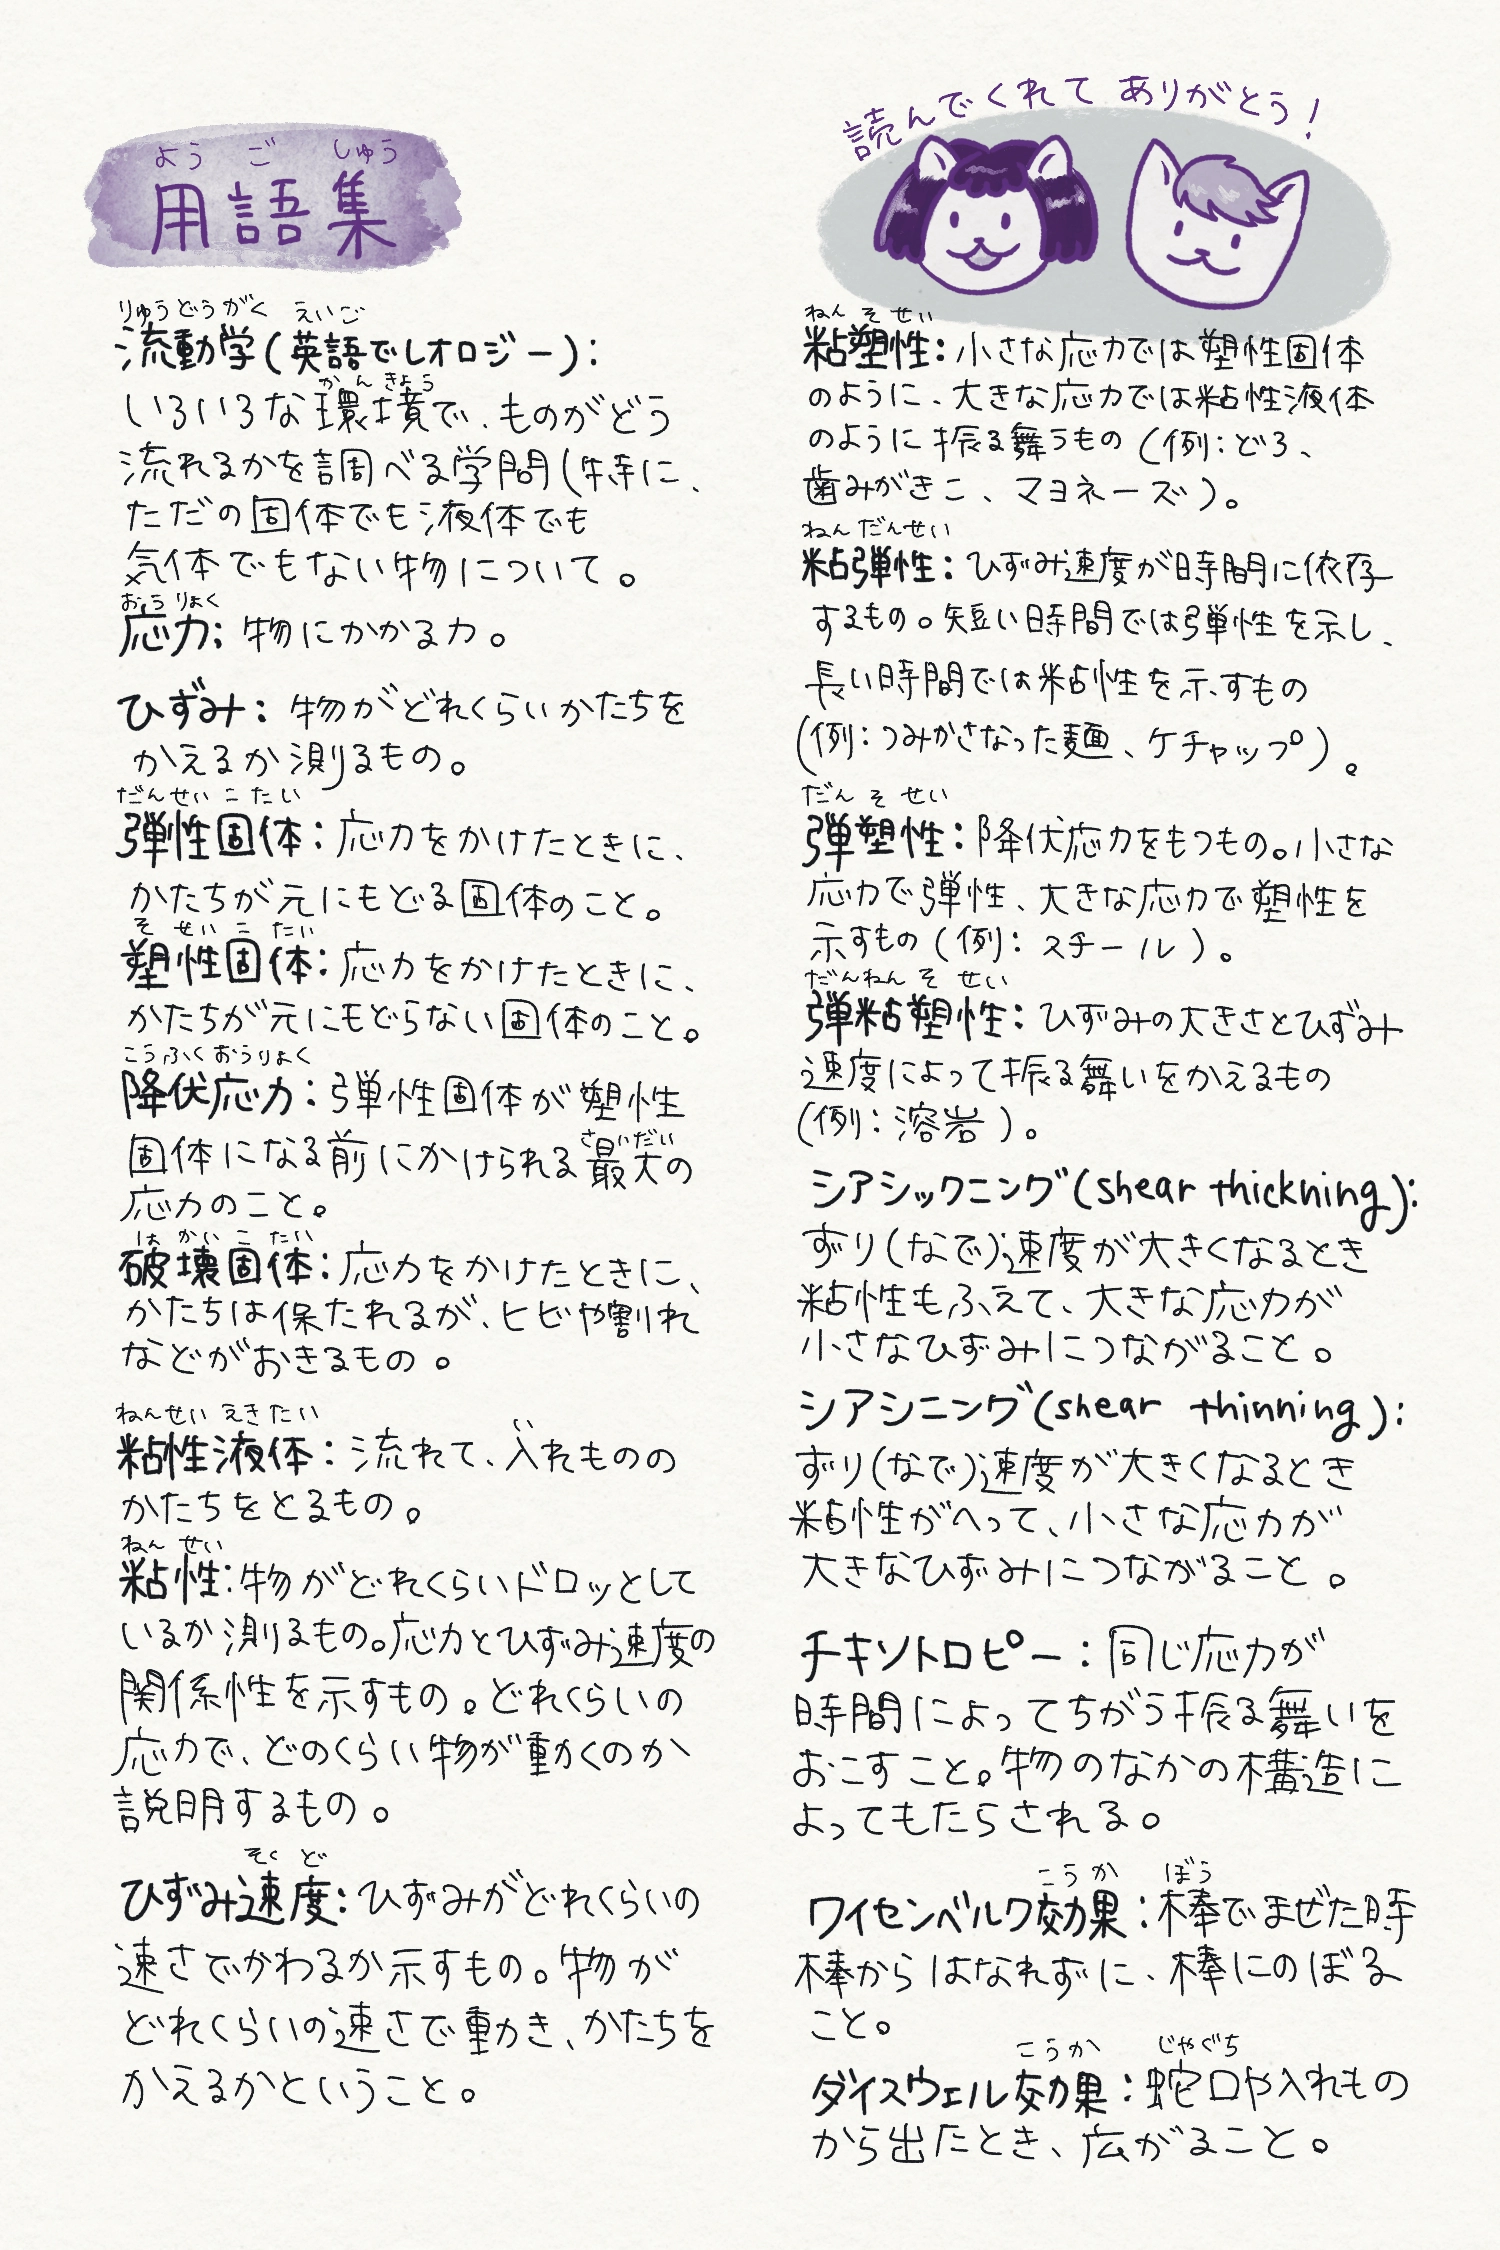 ようごしゅう
用語集
りゅうどうがく えいご
流動学(英語でレオロジー):
かんきょう
いろいろな環境で、ものがどう
流れるかを調べる学問(特に、
ただの固体でも液体でも
気体でもない物について。
おうりょく
応力: 物にかかる力。
ひずみ: 物がどれくらいかたちを
かえるか測るもの。
だんせいこたい
弾性固体: 応力をかけたときに、
かたちが元にもどる固体のこと。
そせいこたい
塑性固体: 応力をかけたときに、
かたちが元にもどらない固体のこと。
こうふくおうりょく
降伏応力: 弾性固体が塑性
さいだい
固体になる前にかけられる最大の
応力のこと。
はかいこたい
破壊固体: 応力をかけたときに、
かたちは保たれるが、ヒビや割れ
などがおきるもの。
ねんせいえきたい い
粘性液体: 流れて、入れものの
かたちをとるもの。
ねんせい
粘性: 物がどれくらいドロッとして
いるか測るもの。応力とひずみ速度の
関係性を示すもの。どれくらいの
応力で、どのくらい物が動くのか
説明するもの。
そくど
ひずみ速度: ひずみがどれくらいの
速さでかわるか示すもの。物が
どれくらいの速さで動き、かたちを
かえるかということ。
読んでくれてありがとう!
ねんそせい
粘塑性: 小さな応力では塑性固体
のように、大きな応力では粘性液体
のように振る舞うもの(例: どろ、
歯みがきこ、マヨネーズ)。
ねんだんせい
粘弾性: ひずみ速度が時間に依存
するもの。短い時間では弾性を示し、
長い時間では粘性を示すもの
(例: つみかさなった麺、ケチャップ)。
だんそせい
弾塑性: 降伏応力をもつもの。小さな
応力で弾性、大きな応力で塑性を
示すもの(例: スチール)。
だんねんそせい
弾粘塑性: ひずみの大きさとひずみ
速度によって振る舞いをかえるもの
(例: 溶岩)。
シアシックニング(shear thickning):
ずり(なで)速度が大きくなるとき
粘性もふえて、大きな応力が
小さなひずみにつながること。
シアシニング(shear thinning):
ずり(なで)速度が大きくなるとき
粘性がへって、小さな応力が
大きなひずみにつながること。
チキソトロピー: 同じ応力が
時間によってちがう振る舞いを
おこすこと。物のなかの構造に
よってもたらされる。
こうか ぼう
ワイセンベルク効果: 棒でまぜた時
棒からはなれずに、棒にのぼる
こと。
こうか じゃぐち
ダイスウェル効果: 蛇口や入れもの
から出たとき、広がること。